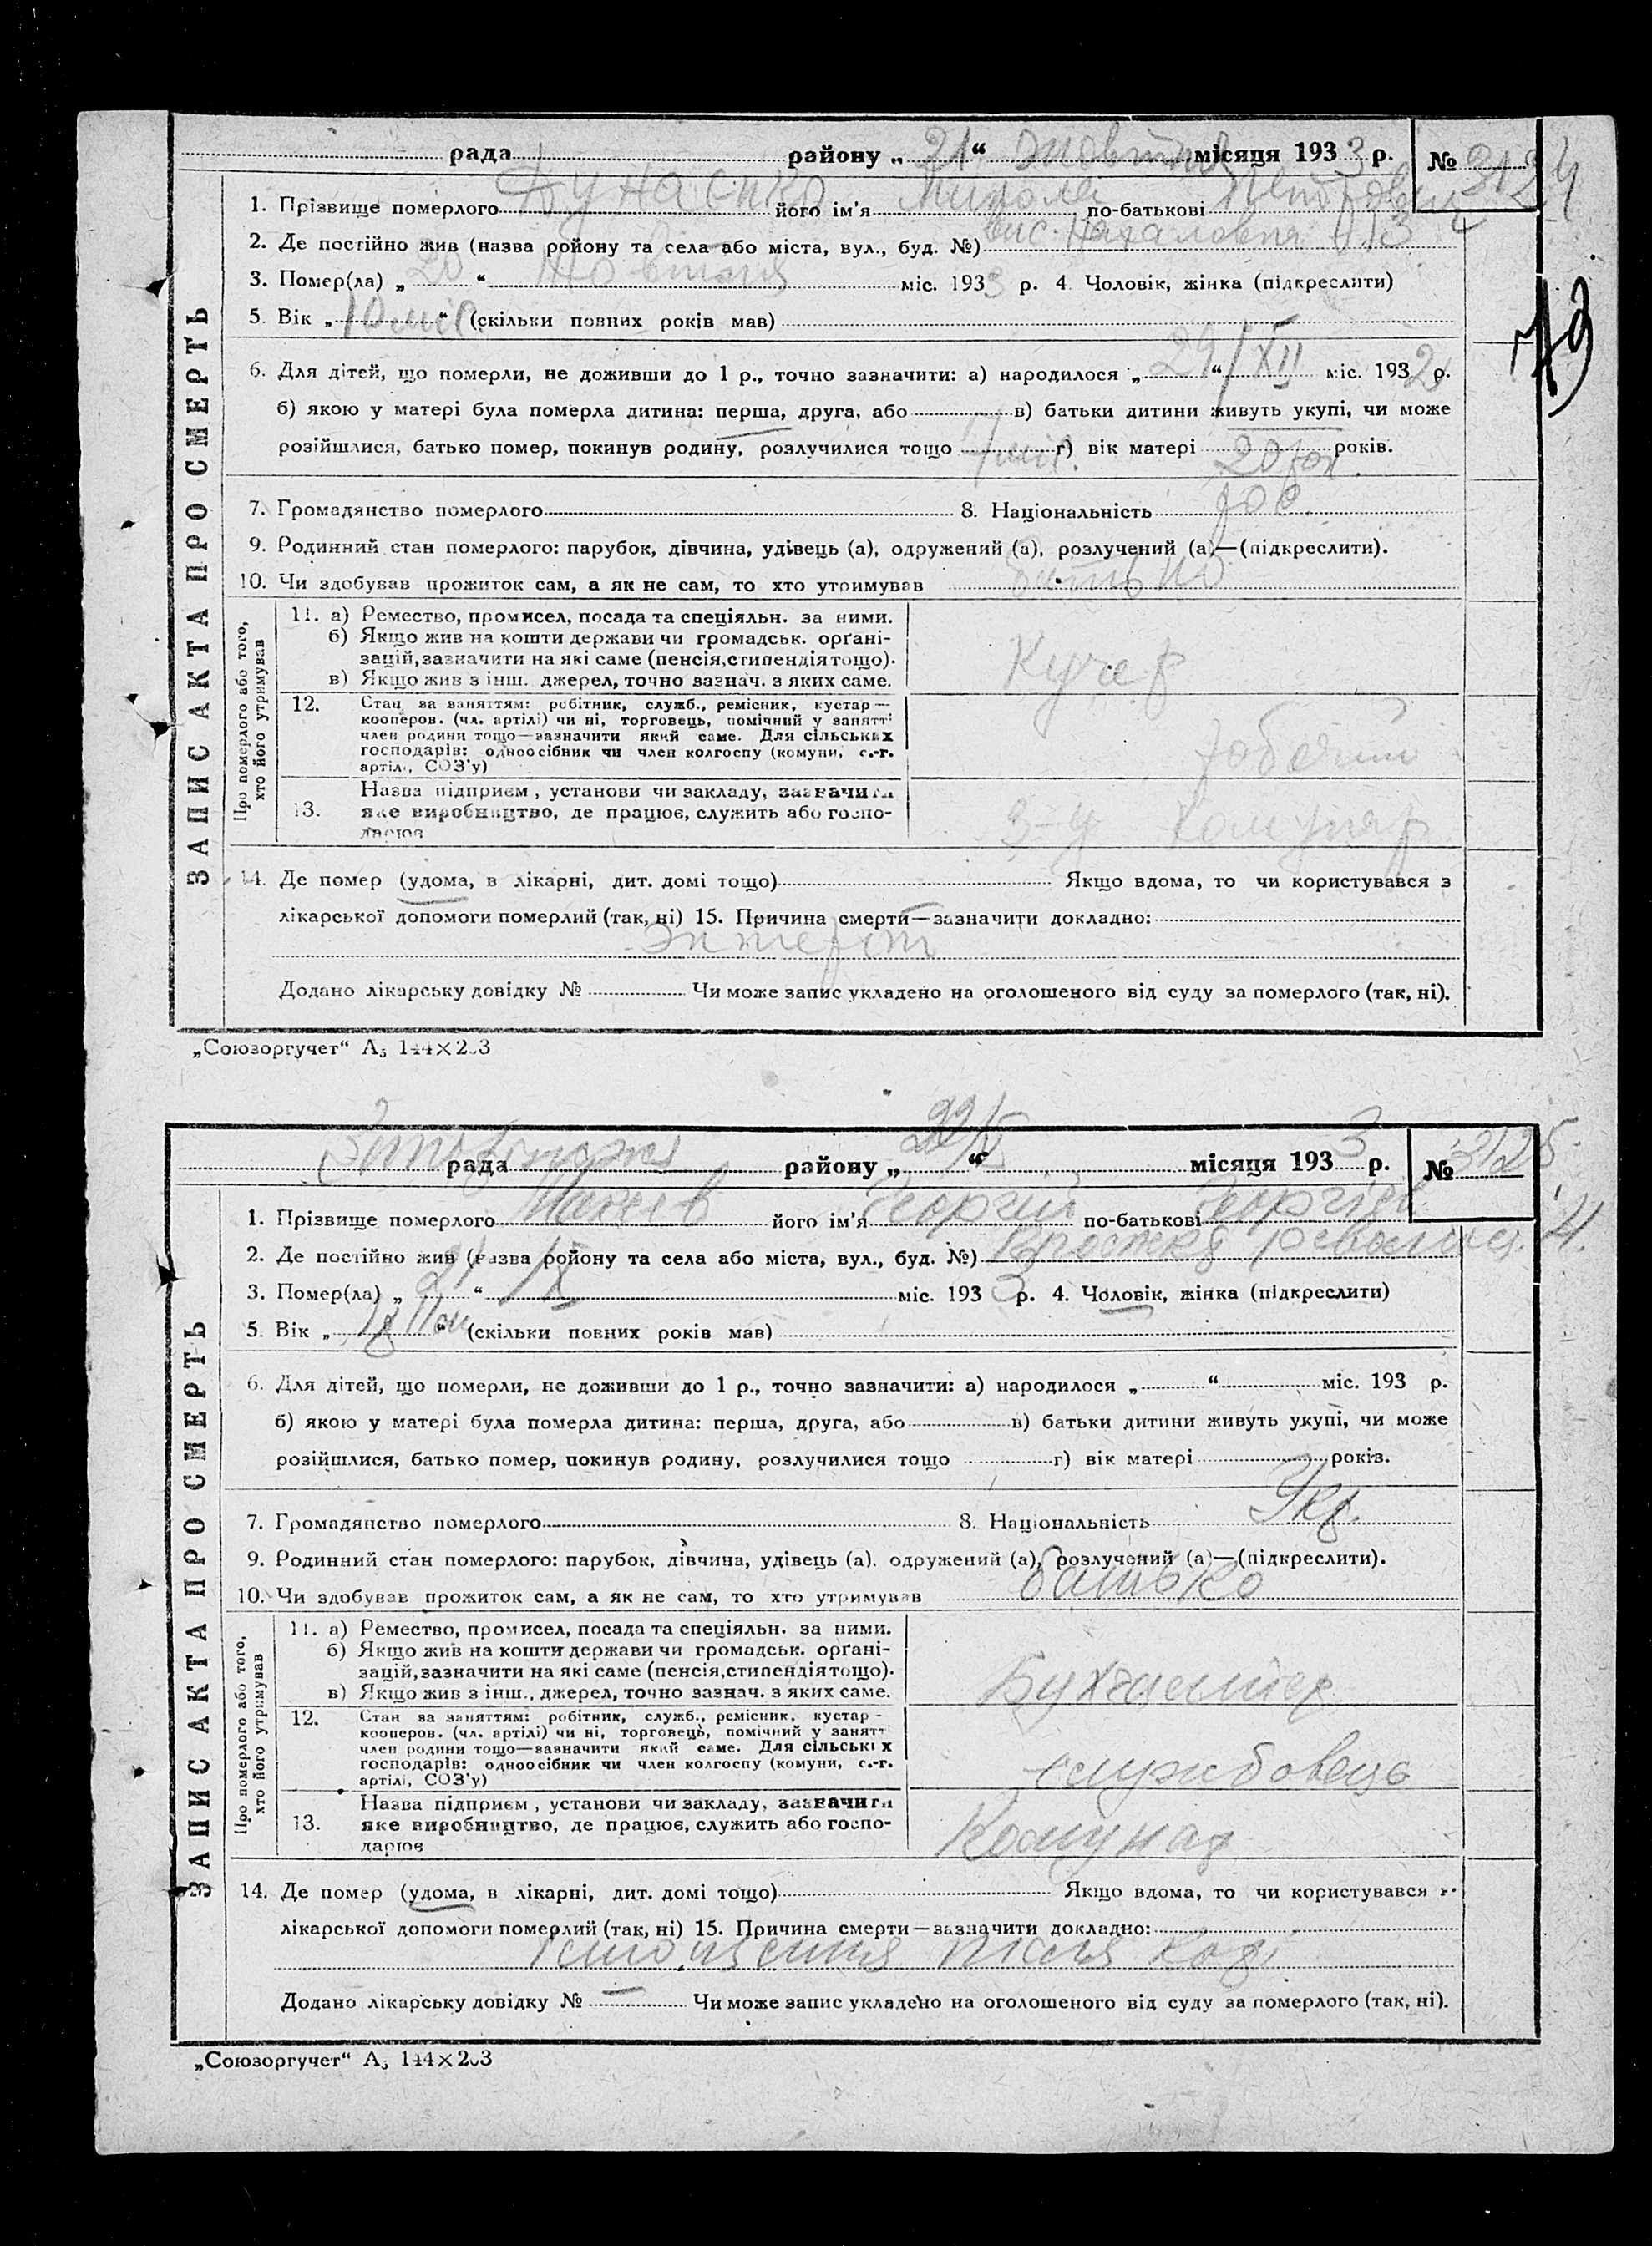 рада районуᅠ„ 21 “ жовтня місяця 193 3 р. № 3124
1. Прізвище померлого його ім'я Микола по-батькові Петрович
2. Де постійно жив (назва ройону та села або міста, вул., буд. №) вис. Нахаловка 113
3. Помер(ла) „ 20 “ жовтня міс. 193 3 р. 4. Чоловік, жінка (підкреслити)
5. Вік „ 10 міс. “ (скільки повних років мав)
6. Для дітей, що померли, не доживши до 1 р., точно зазначити: а) народилося „ 29 “ / XII міс. 193 2 р.
б) якою у матері була померла дитина: перша, друга, або в) батьки дитини живуть укупі, чи може
розійшлися, батько помер, покинув родину, розлучилися тощо г) вік матері 20 років.
7. Громадянство померлого 8. Національність рос.
9. Родинний стан померлого: парубок, дівчина, удівець (а), одружений (а), розлучений (а)—(підкреслити).
10. Чи здобував прожиток сам, а як не сам, то хто утримував батько
ЗАПИС АКТА ПРО СМЕРТЬ
Про померлого або того, хто його утримував
11. а) Ремество, промисел, посада та спеціяльн. за ними.
б) Якщо жив на кошти держави чи громадськ. орґані-
зацій, зазначити на які саме (пенсія, стипендія тощо).
в) Якщо жив з інш. джерел, точно зазнач. з яких саме.
Кучер
12. Стан за заняттям: робітник, служб., ремісник, кустар—
кооперов. (чл. артілі) чи ні, торговець, помічний у занятт
член родини тощо—зазначити який саме. Для сільських
господарів: одноосібник чи член колгоспу (комуни, с.-г.
артілі, СОЗ'у)
робітн
13. Назва підприєм, установи чи закладу, зазначити
яке виробництво, де працює, служить або госпо-
дарює
з-д Комунар
14. Де помер (удома, в лікарні, дит. домі тощо) Якщо вдома, то чи користувався з
лікарської допомоги померлий (так, ні) 15. Причина смерти—зазначити докладно:
Энтеріт
Додано лікарську довідку № Чи може запис укладено на оголошеного від суду за померлого (так, ні).
„Союзоргучет“ А₅ 144×203
рада району „ 22/X “ місяця 193 3 р. № 3125
1. Прізвище померлого Макеев його ім'я Георгій по-батькові Георгієв
2. Де постійно жив (назва ройону та села або міста, вул., буд. №) 4.
3. Помер(ла) „ 21 “ /X міс. 193 3 р. 4. Чоловік, жінка (підкреслити)
5. Вік „ “ (скільки повних років мав)
6. Для дітей, що померли, не доживши до 1 р., точно зазначити: а) народилося „ “ міс. 193 р.
б) якою у матері була померла дитина: перша, друга, або в) батьки дитини живуть укупі, чи може
розійшлися, батько помер, покинув родину, розлучилися тощо г) вік матері років.
7. Громадянство померлого 8. Національність Укр.
9. Родинний стан померлого: парубок, дівчина, удівець (а), одружений (а), розлучений (а)—(підкреслити).
10. Чи здобував прожиток сам, а як не сам, то хто утримував батько
ЗАПИС АКТА ПРО СМЕРТЬ
Про померлого або того, хто його утримував
11. а) Ремество, промисел, посада та спеціяльн. за ними.
б) Якщо жив на кошти держави чи громадськ. орґані-
зацій, зазначити на які саме (пенсія, стипендія тощо).
в) Якщо жив з інш., джерел, точно зазнач. з яких саме.
Бухгалтер
12. Стан за заняттям: робітник, служб., ремісник, кустар-
кооперов. (чл. артілі) чи ні, торговець, помічний у занятт
член родини тощо—зазначити який саме. Для сільських
господарів: одноосібник чи член колгоспу (комуни, с.-г.
артілі, СОЗ'у)
службовець
13. Назва підприєм, установи чи закладу, зазначити
яке виробництво, де працює, служить або госпо-
дарює
Комунар
14. Де помер (удома, в лікарні, дит. домі тощо) Якщо вдома, то чи користувався з
лікарської допомоги померлий (так, ні) 15. Причина смерти—зазначити докладно:
після
Додано лікарську довідку № — Чи може запис укладено на оголошеного від суду за померлого (так, ні).
„Союзоргучет“ А₅ 144×203